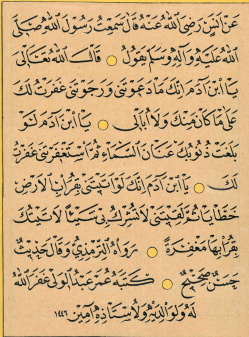 عَنْ أَنَسٍ رَضِيَ اللهُ عَنْهُ قَالَ سَمِعْتُ رَسُولَ اللهِ صَلَّى
اللهُ عَلَيْهِ وَآلِهِ وَسَلَّمَ يَقُولُ قَالَ اللهُ تَعَالَى
يَا ابْنَ آدَمَ إِنَّكَ مَا دَعَوْتَنِي وَرَجَوْتَنِي غَفَرْتُ لَكَ
عَلَى مَا كَانَ مِنْكَ وَلَا أُبَالِي يَا ابْنَ آدَمَ لَوْ
بَلَغَتْ ذُنُوبُكَ عَنَانَ السَّمَاءِ ثُمَّ اسْتَغْفَرْتَنِي غَفَرْتُ
لَكَ يَا ابْنَ آدَمَ إِنَّكَ لَوْ أَتَيْتَنِي بِقُرَابِ الْأَرْضِ
خَطَايَا ثُمَّ لَقِيتَنِي لَا تُشْرِكُ بِي شَيْئًا لَأَتَيْتُكَ
بِقُرَابِهَا مَغْفِرَةً رَوَاهُ التِّرْمِذِيُّ وَقَالَ حَدِيثٌ
حَسَنٌ صَحِيحٌ كَتَبَهُ عُمَر عَبْدُ الْوَلِي غَفَرَ اللهُ
لَهُ وَلِوَالِدَيْهِ وَلِأُسْتَاذِهِ آمِين ١٤٤٦